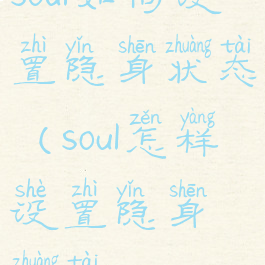 soul如何设
zhì yǐn shēn zhuàng tài
置隐身状态
zěn yàng
(soul怎样
shè zhì yǐn shēn
设置隐身
zhuàng tài